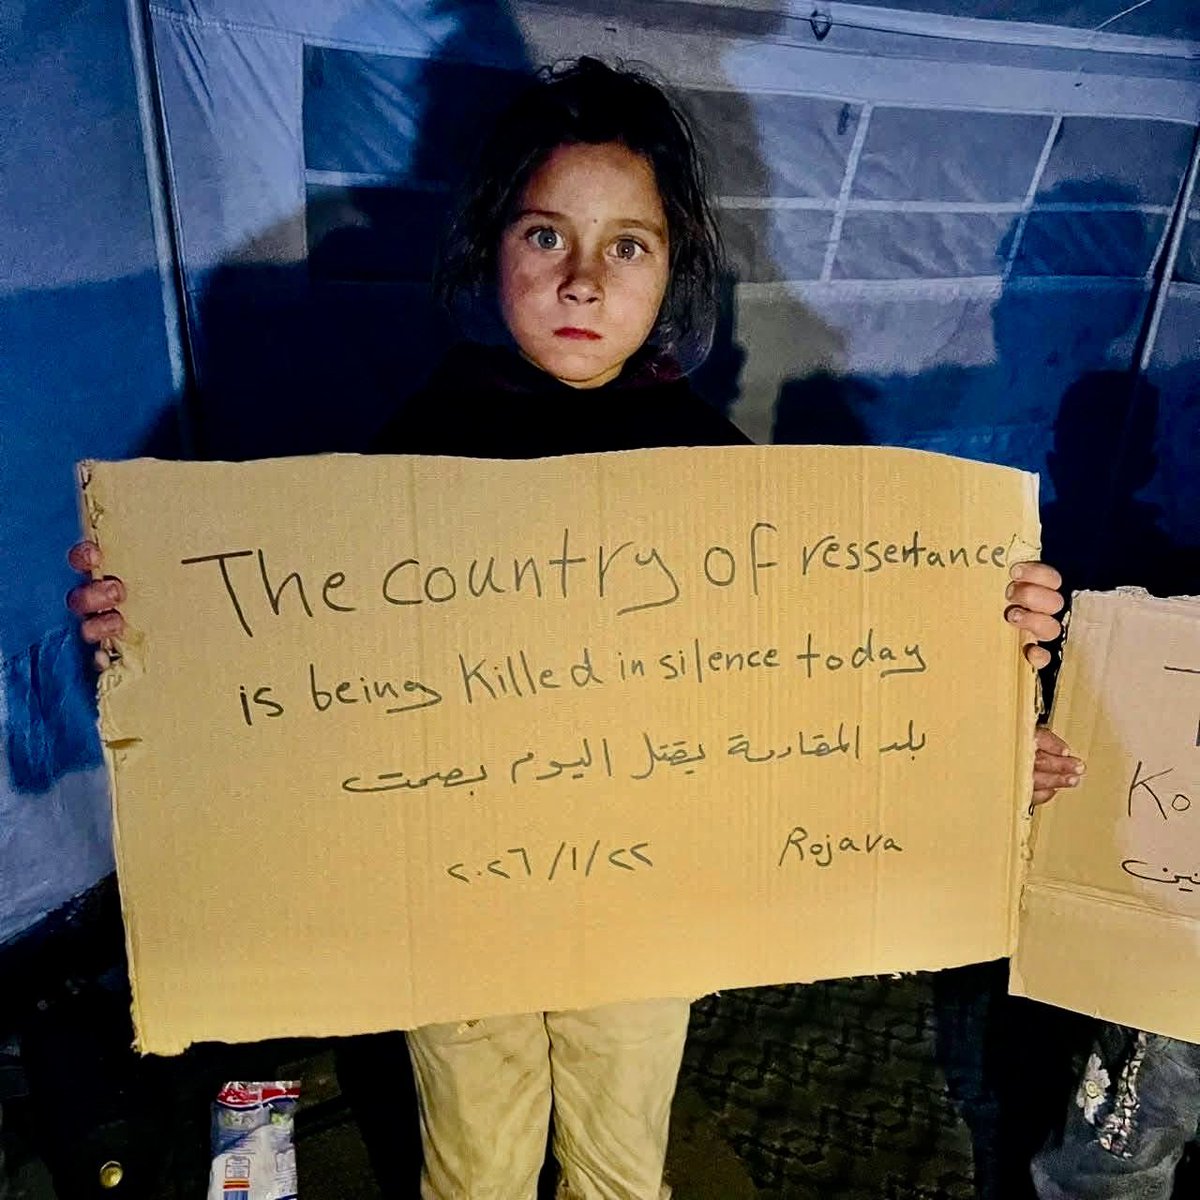 The country of ressertance
is being killed in silence today
بلد المقاومة يقتل اليوم بصمت
٢٠٢٦/١/٢٢ Rojava
Ko